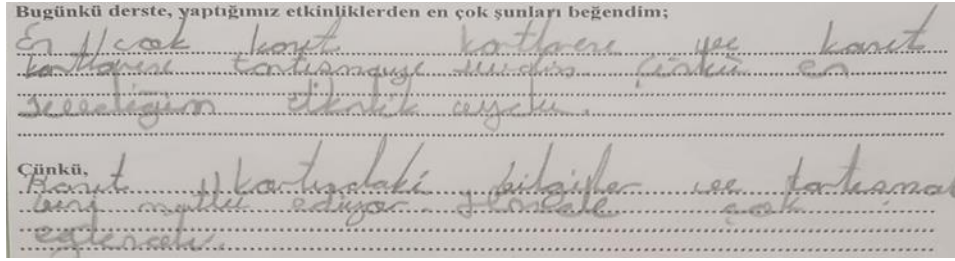 Bugünkü derste, yaptığımız etkinliklerden en çok şunları beğendim;
En çok kanıt kartlarını ve kanıt
kartlarını tartışmayı sevdim çünkü en
sevdiğim etkinlik oydu.
Çünkü,
Kanıt kartındaki bilgiler ve tartışmak
beni mutlu ediyor. çok
eğlenceli.